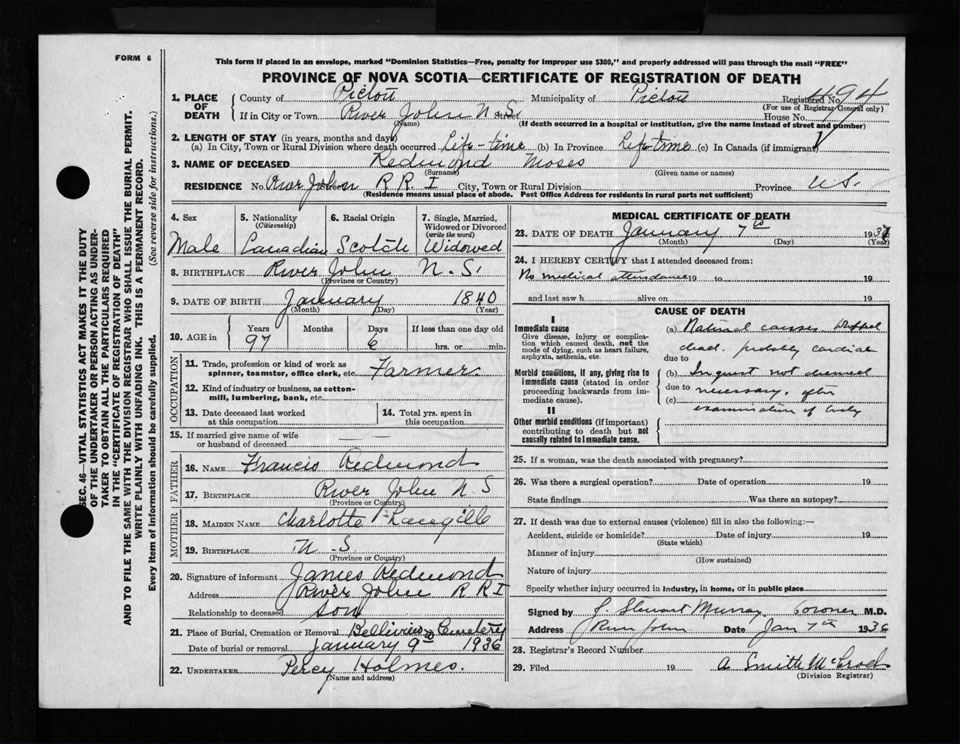 FORM 6
This form if placed in an envelope, marked "Dominion Statistics—Free, penalty for improper use $300," and properly addressed will pass through the mail "FREE"
PROVINCE OF NOVA SCOTIA—CERTIFICATE OF REGISTRATION OF DEATH
1. PLACE OF DEATH
County of Pictou Municipality of Pictou Registered No. 494
(For use of Registrar General only)
If in City or Town River John N S Street House No.
(Name) (If death occurred in a hospital or institution, give the name instead of street and number)
2. LENGTH OF STAY (in years, months and days)
(a) In City, Town or Rural Division where death occurred Life-time (b) In Province Life time (c) In Canada (if immigrant)
3. NAME OF DECEASED Redmond Moses
(Surname) (Given name or names)
RESIDENCE No. River John R R 1 City, Town or Rural Division Province N.S.
(Residence means usual place of abode. Post Office Address for residents in rural parts not sufficient)
4. Sex
Male
5. Nationality (Citizenship)
Canadian
6. Racial Origin
Scotch
7. Single, Married, Widowed or Divorced (write the word)
Widowed
8. BIRTHPLACE River John N. S.
(Province or Country)
9. DATE OF BIRTH January 1840
(Month) (Day) (Year)
10. AGE in
Years Months Days If less than one day old
97 6 hrs. or min.
OCCUPATION
11. Trade, profession or kind of work as spinner, teamster, office clerk, etc. Farmer.
12. Kind of industry or business, as cotton-mill, lumbering, bank, etc.
13. Date deceased last worked at this occupation
14. Total yrs. spent in this occupation
15. If married give name of wife or husband of deceased
FATHER
16. NAME Francis Redmond
17. BIRTHPLACE River John N S
(Province or Country)
MOTHER
18. MAIDEN NAME Charlotte Langille
19. BIRTHPLACE N. S
(Province or Country)
20. Signature of informant James Redmond
Address River John R R 1
Relationship to deceased Son
21. Place of Burial, Cremation or Removal Cemetery
Date of burial or removal January 9th 1936
22. UNDERTAKER Percy Holmes.
(Name and address)
MEDICAL CERTIFICATE OF DEATH
23. DATE OF DEATH January 7th 1936
(Month) (Day) (Year)
24. I HEREBY CERTIFY that I attended deceased from:
No medical attendance 19 to 19
and last saw h alive on 19
CAUSE OF DEATH
I
Immediate cause
Give disease, injury or complication which caused death, not the mode of dying, such as heart failure, asphyxia, asthenia, etc.
Morbid conditions, if any, giving rise to immediate cause (stated in order proceeding backwards from immediate cause).
II
Other morbid conditions (important) contributing to death but not causally related to immediate cause.
(a) Natural causes. Dropped
dead. probably cardiac
due to
(b) Inquest not deemed
due to necessary, after
(c) examination of body
25. If a woman, was the death associated with pregnancy?
26. Was there a surgical operation? Date of operation 19
State findings Was there an autopsy?
27. If death was due to external causes (violence) fill in also the following:—
Accident, suicide or homicide? Date of injury 19
(State which)
Manner of injury
(How sustained)
Nature of injury
Specify whether injury occurred in industry, in home, or in public place
Signed by J Stewart Murray Coroner M.D.
Address River John Date Jan 7th 1936
28. Registrar's Record Number
29. Filed 19
A Smith
(Division Registrar)
SEC. 46—VITAL STATISTICS ACT MAKES IT THE DUTY
OF THE UNDERTAKER OR PERSON ACTING AS UNDER-
TAKER TO OBTAIN ALL THE PARTICULARS REQUIRED
IN THE "CERTIFICATE OF REGISTRATION OF DEATH"
AND TO FILE THE SAME WITH THE DIVISION REGISTRAR WHO SHALL ISSUE THE BURIAL PERMIT.
WRITE PLAINLY WITH UNFADING INK. THIS IS A PERMANENT RECORD.
Every item of information should be carefully supplied. (See reverse side for instructions.)